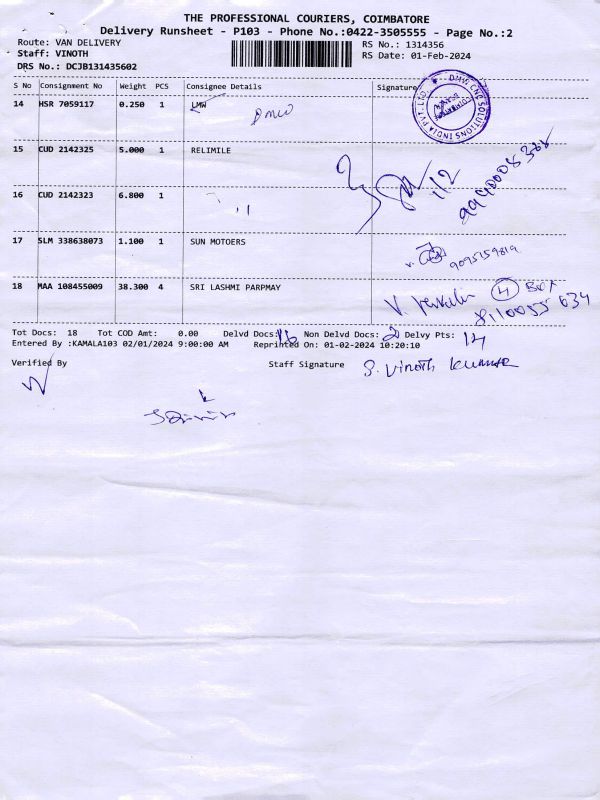 THE PROFESSIONAL COURIERS, COIMBATORE
Delivery Runsheet - P103 - Phone No.:0422-3505555 - Page No.:2
Route: VAN DELIVERY
RS No.: 1314356
Staff: VINOTH
RS Date: 01-Feb-2024
DRS No.: DCJB131435602
S No Consignment No Weight PCS Consignee Details Signature
14 HSR 7059117 0.250 1 LMW
DMW CNC SOLUTIONS INDIA PVT. LTD
15 CUD 2142325 5.000 1 RELIMILE
1/2
16 CUD 2142323 6.800 1 ,,
17 SLM 338638073 1.100 1 SUN MOTOERS
9095159819
18 MAA 108455009 38.300 4 SRI LASHMI PARPMAY
4 BOX
8110055 634
Tot Docs: 18 Tot COD Amt: 0.00 Delvd Docs: 16 Non Delvd Docs: 2 Delvy Pts: 14
Entered By :KAMALA103 02/01/2024 9:00:00 AM Reprinted On: 01-02-2024 10:20:10
Verified By Staff Signature S. Vinoth Kumar